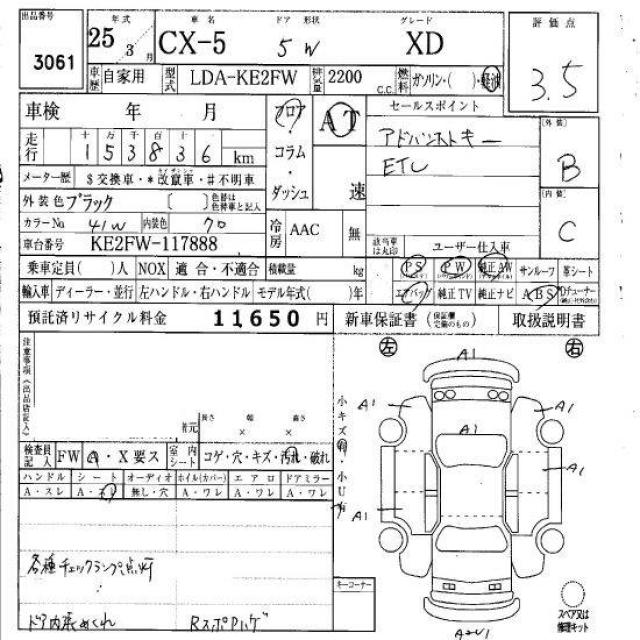 出品番号 年式 車名 ドア 形状 グレード 評価点
3061 25 3月 CX-5 5 W XD 3.5
車歴 自家用 型式 LDA-KE2FW 排気量 2200 c.c. 燃料 ガソリン・( )・軽油
車検 年 月 フロア AT セールスポイント
走行 十万 千百十
153836 km コラム アドバンストキー 外装 B
ETC
メーター歴 $交換車・*改竄車・#不明車 ・ダッシュ 速 内装 C
外装色 ブラック 〔 〕 色替は色替車と記入
カラーNo 41W 内装色 クロ 冷房 AAC 無
車台番号 KE2FW-117888 該当車は丸印 ユーザー仕入車
乗車定員( )人 NOX 適合・不適合 積載量 kg PS PW 純正AW サンルーフ 革シート
輸入車 ディーラー・並行 左ハンドル・右ハンドル モデル年式( )年 エアバッグ 純正TV 純正ナビ ABS Dチューナー
預託済リサイクル料金 11650 円 新車保証書(保証欄完備のもの) 取扱説明書
注意事項(出品店記入) 左 A1 右
小キズ有・小U有
A1 A1
諸元 長さ × 幅 × 高さ
検査員記入 FW A・X要ス 室内シート コゲ・穴・キズ・汚れ・破れ
ハンドル シート オーディオ ホイル(カバー) エアロ ドアミラー A1
A・スレ A・スレ 無し・穴 A・ワレ A・ワレ A・ワレ A1
各種チェックランプ点灯
キーコーナー
スペア又は修理キット
ドア内張めくれ RスポPハゲ